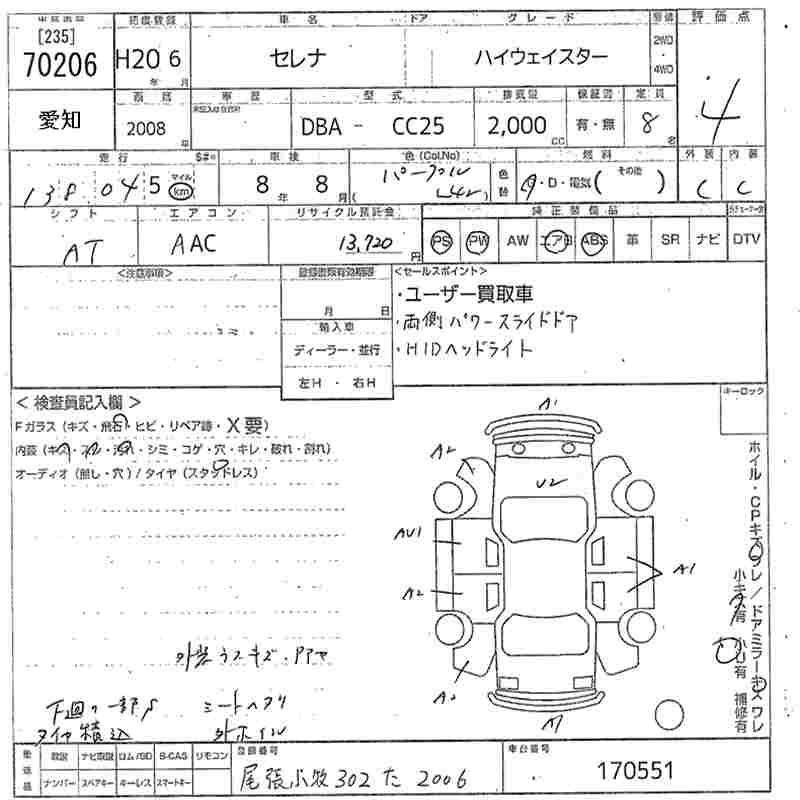 [235]
70206
初度登録
H20 6
年 月
車名
セレナ
ドア
グレード
ハイウェイスター
2WD
4WD
評価点
4
愛知
2008
年
車歴
型式
DBA - CC25
排気量
2,000
CC
保証書
有・無
定員
8
名
走行
138,045
マイル
km
車検
8年 8月
色(Col.No)
パープル
L42
色替
燃料
G・D・電気(その他)
外装
C
内装
C
シフト
AT
エアコン
AAC
リサイクル預託金
13,720
円
純正装備品
PS PW AW エアB ABS 革 SR ナビ
DTV
<注意事項>
登録書類有効期限
月 日
輸入車
ディーラー・並行
左H ・ 右H
<セールスポイント>
・ユーザー買取車
・両側パワースライドドア
・HIDヘッドライト
<検査員記入欄>
Fガラス(キズ・飛石・ヒビ・リペア跡・X要)
内装(キズ・スレ・汚れ・シミ・コゲ・穴・キレ・破れ・割れ)
オーディオ(無し・穴)/タイヤ(スタッドレス)
キーロック
A1
A2
U2
AU1
A2
A1
A2
ホイル・CPキズワレ/ドアミラーキズワレ
小キズ有 小U有 補修有
外装うスキズ・
下回り一部S
シートヘタリ
タイヤ積込
外ホイル
取説 ナビ取説 ロム/SD B-CAS リモコン
ナンバー スペアキー キーレス スマートキー
登録番号
尾張小牧 302 た 2006
車台番号
170551